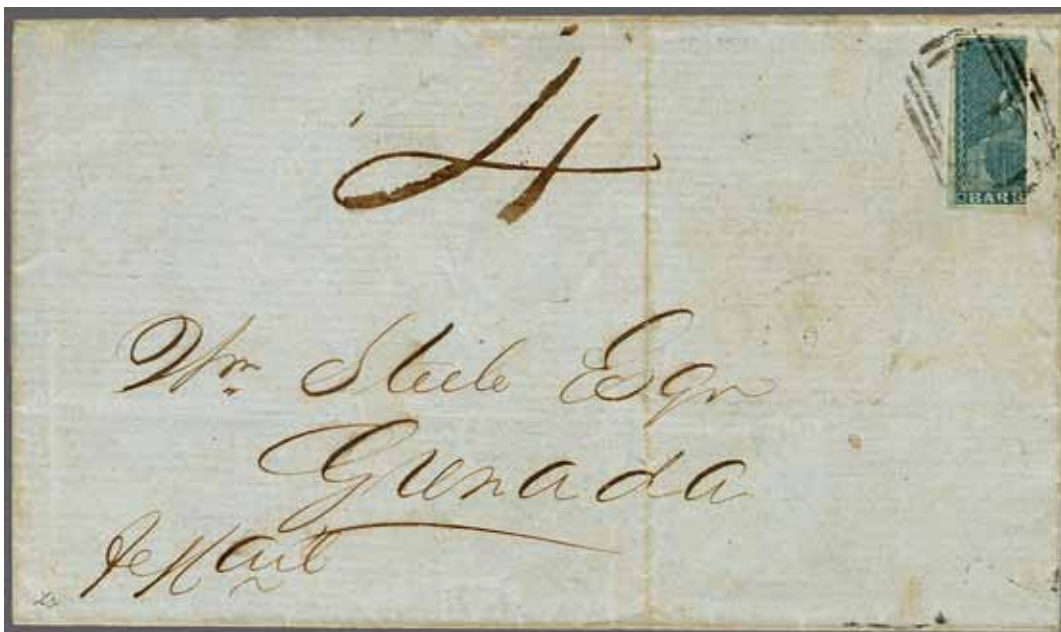 4
BARB
Wm Steele Esqr
Grenada
per Mail